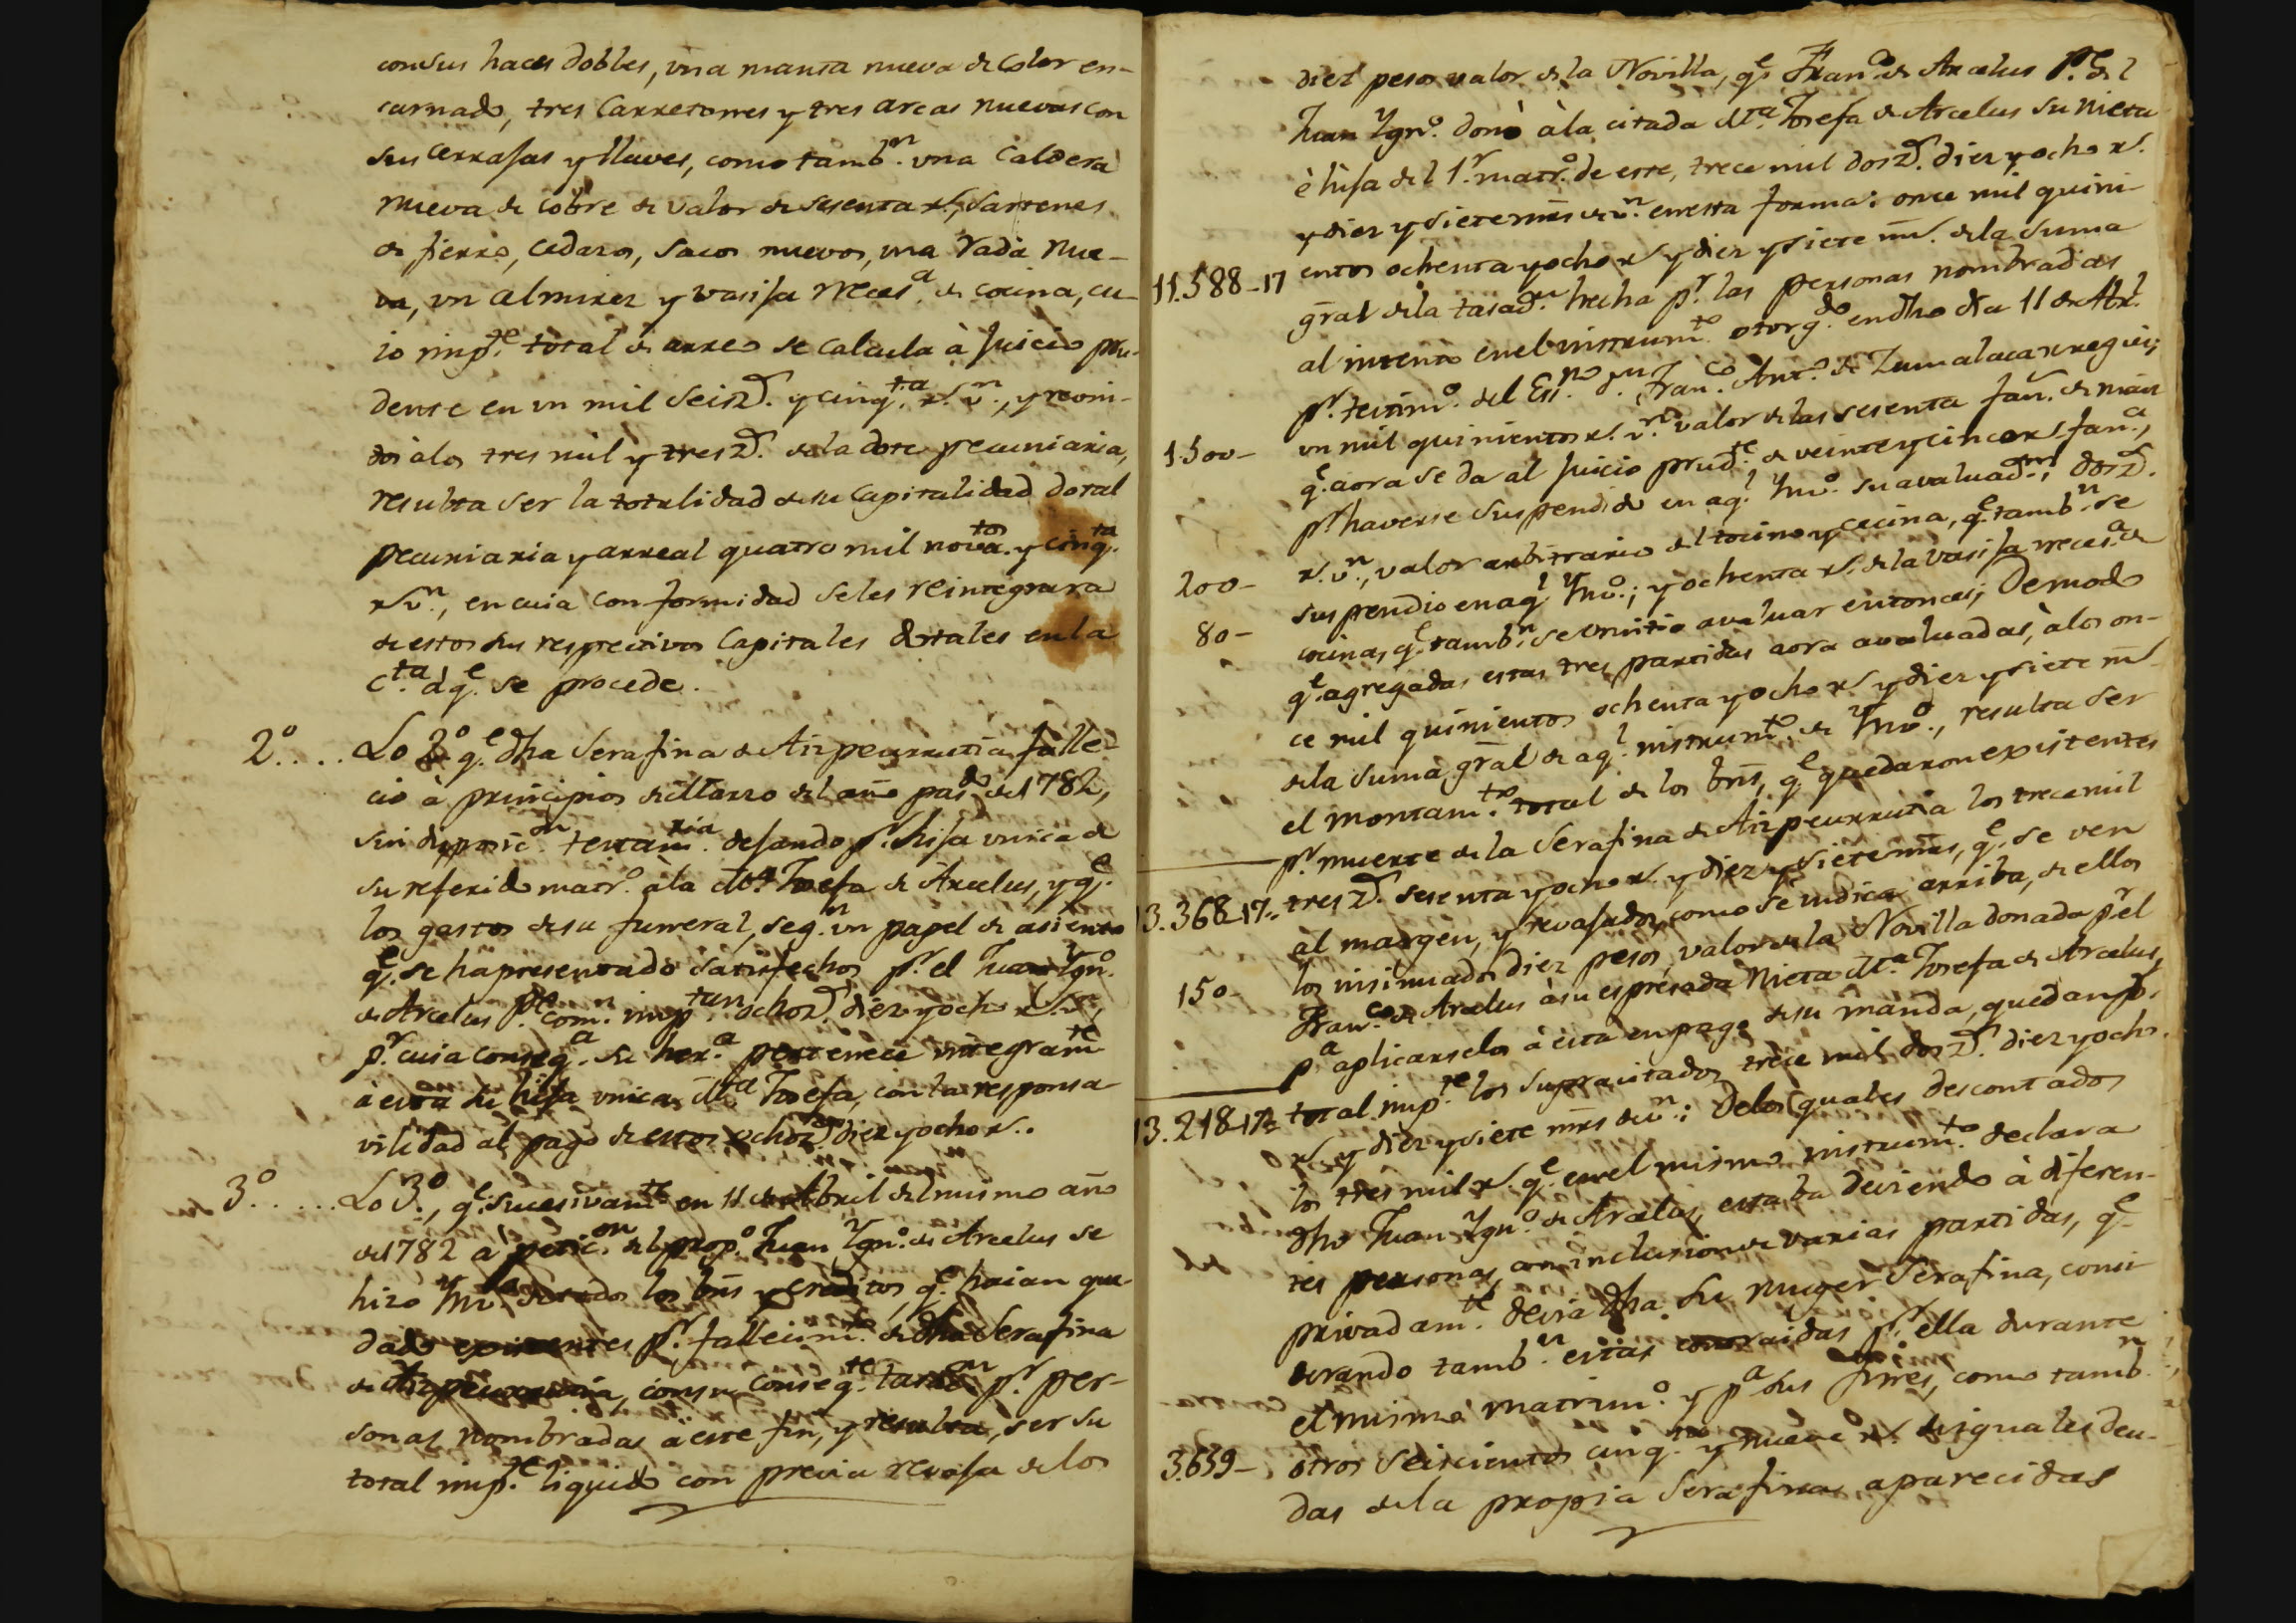 con sus haces dobles, una manta nueva de color en-
carnado, tres Carretones y tres arcas nuevas con
sus cerrajas y llaves, como tamb.n una Caldera
nueva de cobre de valor de sesenta r.s, sartenes
de fierro, cedazos, sacos nuevos, una rada nue-
va, un almirez y vasija neces.a de cocina, cu-
io imp.te total de arreo se calcula à juicio pru-
dente en un mil seisz.s y cinq.ta r.s v.n, y reoni-
dos à los tres mil y tresz.s de la dote pecuniaria,
resulta ser la totalidad de su Capitalidad dotal
pecuniaria y arreal quatro mil novz.tos y cinq.ta
r.s v.n, en cuia conformidad se les reintegrara
de estos sus respectivos Capitales dotales en la
c.ta d q.e se procede.
2.º .... Lo 2.º q.e dha Serafina de Aizpeurrutia falle-
ciò à principios de Marzo del año pas.do de 1782,
sin disposic.on testam.ria dejando p.r hija unica de
su referido matr.º à la M.a Josefa de Arcelus, y q.e
los gastos de su funeral, seg.n un papel de asiento
q.e se ha presentado satisfechos p.r el Juan Ygn.º
de Arcelus P.e com.n imp.tan ochoz.s diez y ocho r.s v.n,
p.r cuia conseq.a su her.a pertenece integram.te
à esta su hija unica M.ta Josefa, con la responsa
vilidad al pago de estos ochoz.s diez y ocho r.s.
3.º ..... Lo 3.º, q.e sucesivam.te en 11 de Abril del mismo año
de 1782 à petic.on del prop.º Juan Ygn.º de Arcelus se
hizo Ynv.º de todos los bns y creditos, q.e havian que-
dado existentes p.r fallecim.to de dha Serafina
de Aizpeurrutia, con su conseq.te tasac.on p.r per-
sonas nombradas à este fin, y resulta, ser su
total imp.te liquido con previa revaja de los
diez pesos valor de la Novilla, q.e Fran.co de Arcelus P.e del
Juan Ygn.º donò à la citada M.ta Josefa de Arcelus su nieta
è hija del 1.r matr.º de este, trece mil dosz.s diez y ocho r.s
y diez y siete mrs de v.n en esta forma: once mil quini-
11.588-17 entos ochenta y ocho r.s y diez y siete ms. de la suma
gral de la tasac.n hecha p.r las personas nombradas
al intento en el instrum.to otorg.do en dho dia 11 de Abr.l
p.r testim.º del Ess.no D.n Fran.co Ant.º de Zumalacarregui;
1.500- un mil quinientos r.s v.n valor de las sesenta fan.s de maiz
q.e aora se da al juicio prud.te de veinte y cinco r.s fan.a,
p.r haverse suspendido en aq.l Ynv.º su avaluac.on; dosz.s
200- r.s v.n, valor arbitrario del tocino y cecina, q.e tamb.n se
suspendio en aq.l Ynv.º; y ochenta r.s de la vasija neces.a de
80- cocina, q.e tamb.n se omitiò avaluar entonces; De modo
q.e agregadas estas tres partidas aora avaluadas, à los on-
ce mil quinientos ochenta y ocho r.s y diez y siete ms
de la suma gral de aq.l instrum.to de Ynv.º, resulta ser
el montam.to total de los bns, q.e quedaron existentes
p.r muerte de la Serafina de Aizpeurrutia los trece mil
13.368-17.. tresz.s sesenta y ocho r.s y diez y siete mrs, q.e se ven
al margen, y revajados, como se indica arriba, de ellos
150- los insinuados diez pesos, valor de la Novilla donada p.r el
Fran.co de Arcelus à su espresada Nieta M.ta Josefa de Arcelus,
p.a aplicarselos à esta en pago de su manda, quedan p.r
13.218-17.. total imp.te los supracitados trece mil dosz.s diez y ocho
r.s y diez y siete mrs de v.n; De los quales descontados
los tres mil r.s q.e en el mismo instrum.to declara
dho Juan Ygn.º de Arcelus, estaba deviendo à diferen-
tes personas, con inclusion de varias partidas, q.e
privadam.te devia dha su muger Serafina, consi
derando tamb.n estas contraidas p.r ella durante
el mismo matrim.º y p.a sus fines, como tamb.n
3.659- otros seiscientos cinq.ta y nueve r.s de iguales deu-
das de la propia Serafina aparecidas